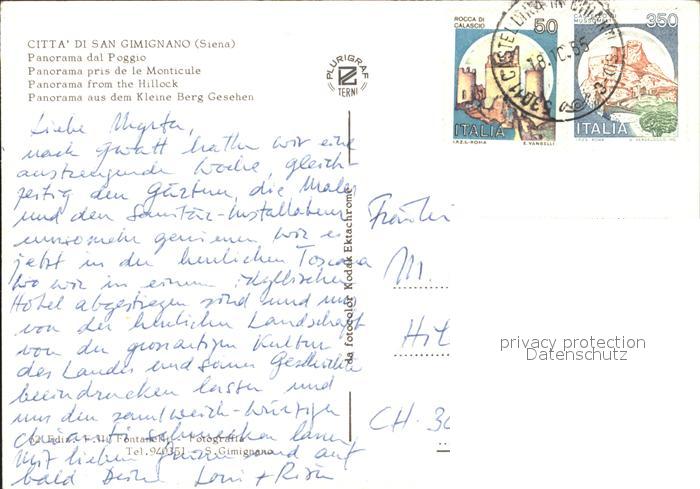 CITTA' DI SAN GIMIGNANO (Siena)
Panorama dal Poggio
Panorama pris de le Monticule
Panorama from the Hillock
Panorama aus dem Kleine Berg Gesehen
PLURIGRAF
TERNI
ROCCA DI CALASCIO
50
350
ITALIA
ITALIA
I.P.Z.S.-ROMA
E. VANGELLI
CASTELLINA IN CHIANTI
18.10.85
53011
Liebe
nach Gwatt hatten wir eine
anstrengende Woche, gleich-
zeitig den Gärtner, die Maler
und den Sanitär-Installateur
umsomehr geniessen wir es
jetzt in der herrlichen Toscana
wo wir in einem idyllischen
Hotel abgestiegen sind und uns
von der herrlichen Landschaft
von der grossartigen Kultur
des Landes und seiner Geschichte
beeindrucken lassen und
uns den samtweich-würzigen
Chianti schmecken lassen
Mit lieben Grüssen und auf
bald Deine
da fotocolor Kodak Ektachrome
Ediz. F.lli Fontanelli - Fotografia
Tel. 940351 - S. Gimignano
Fräulein
M.
Hil
CH-30
privacy protection
Datenschutz